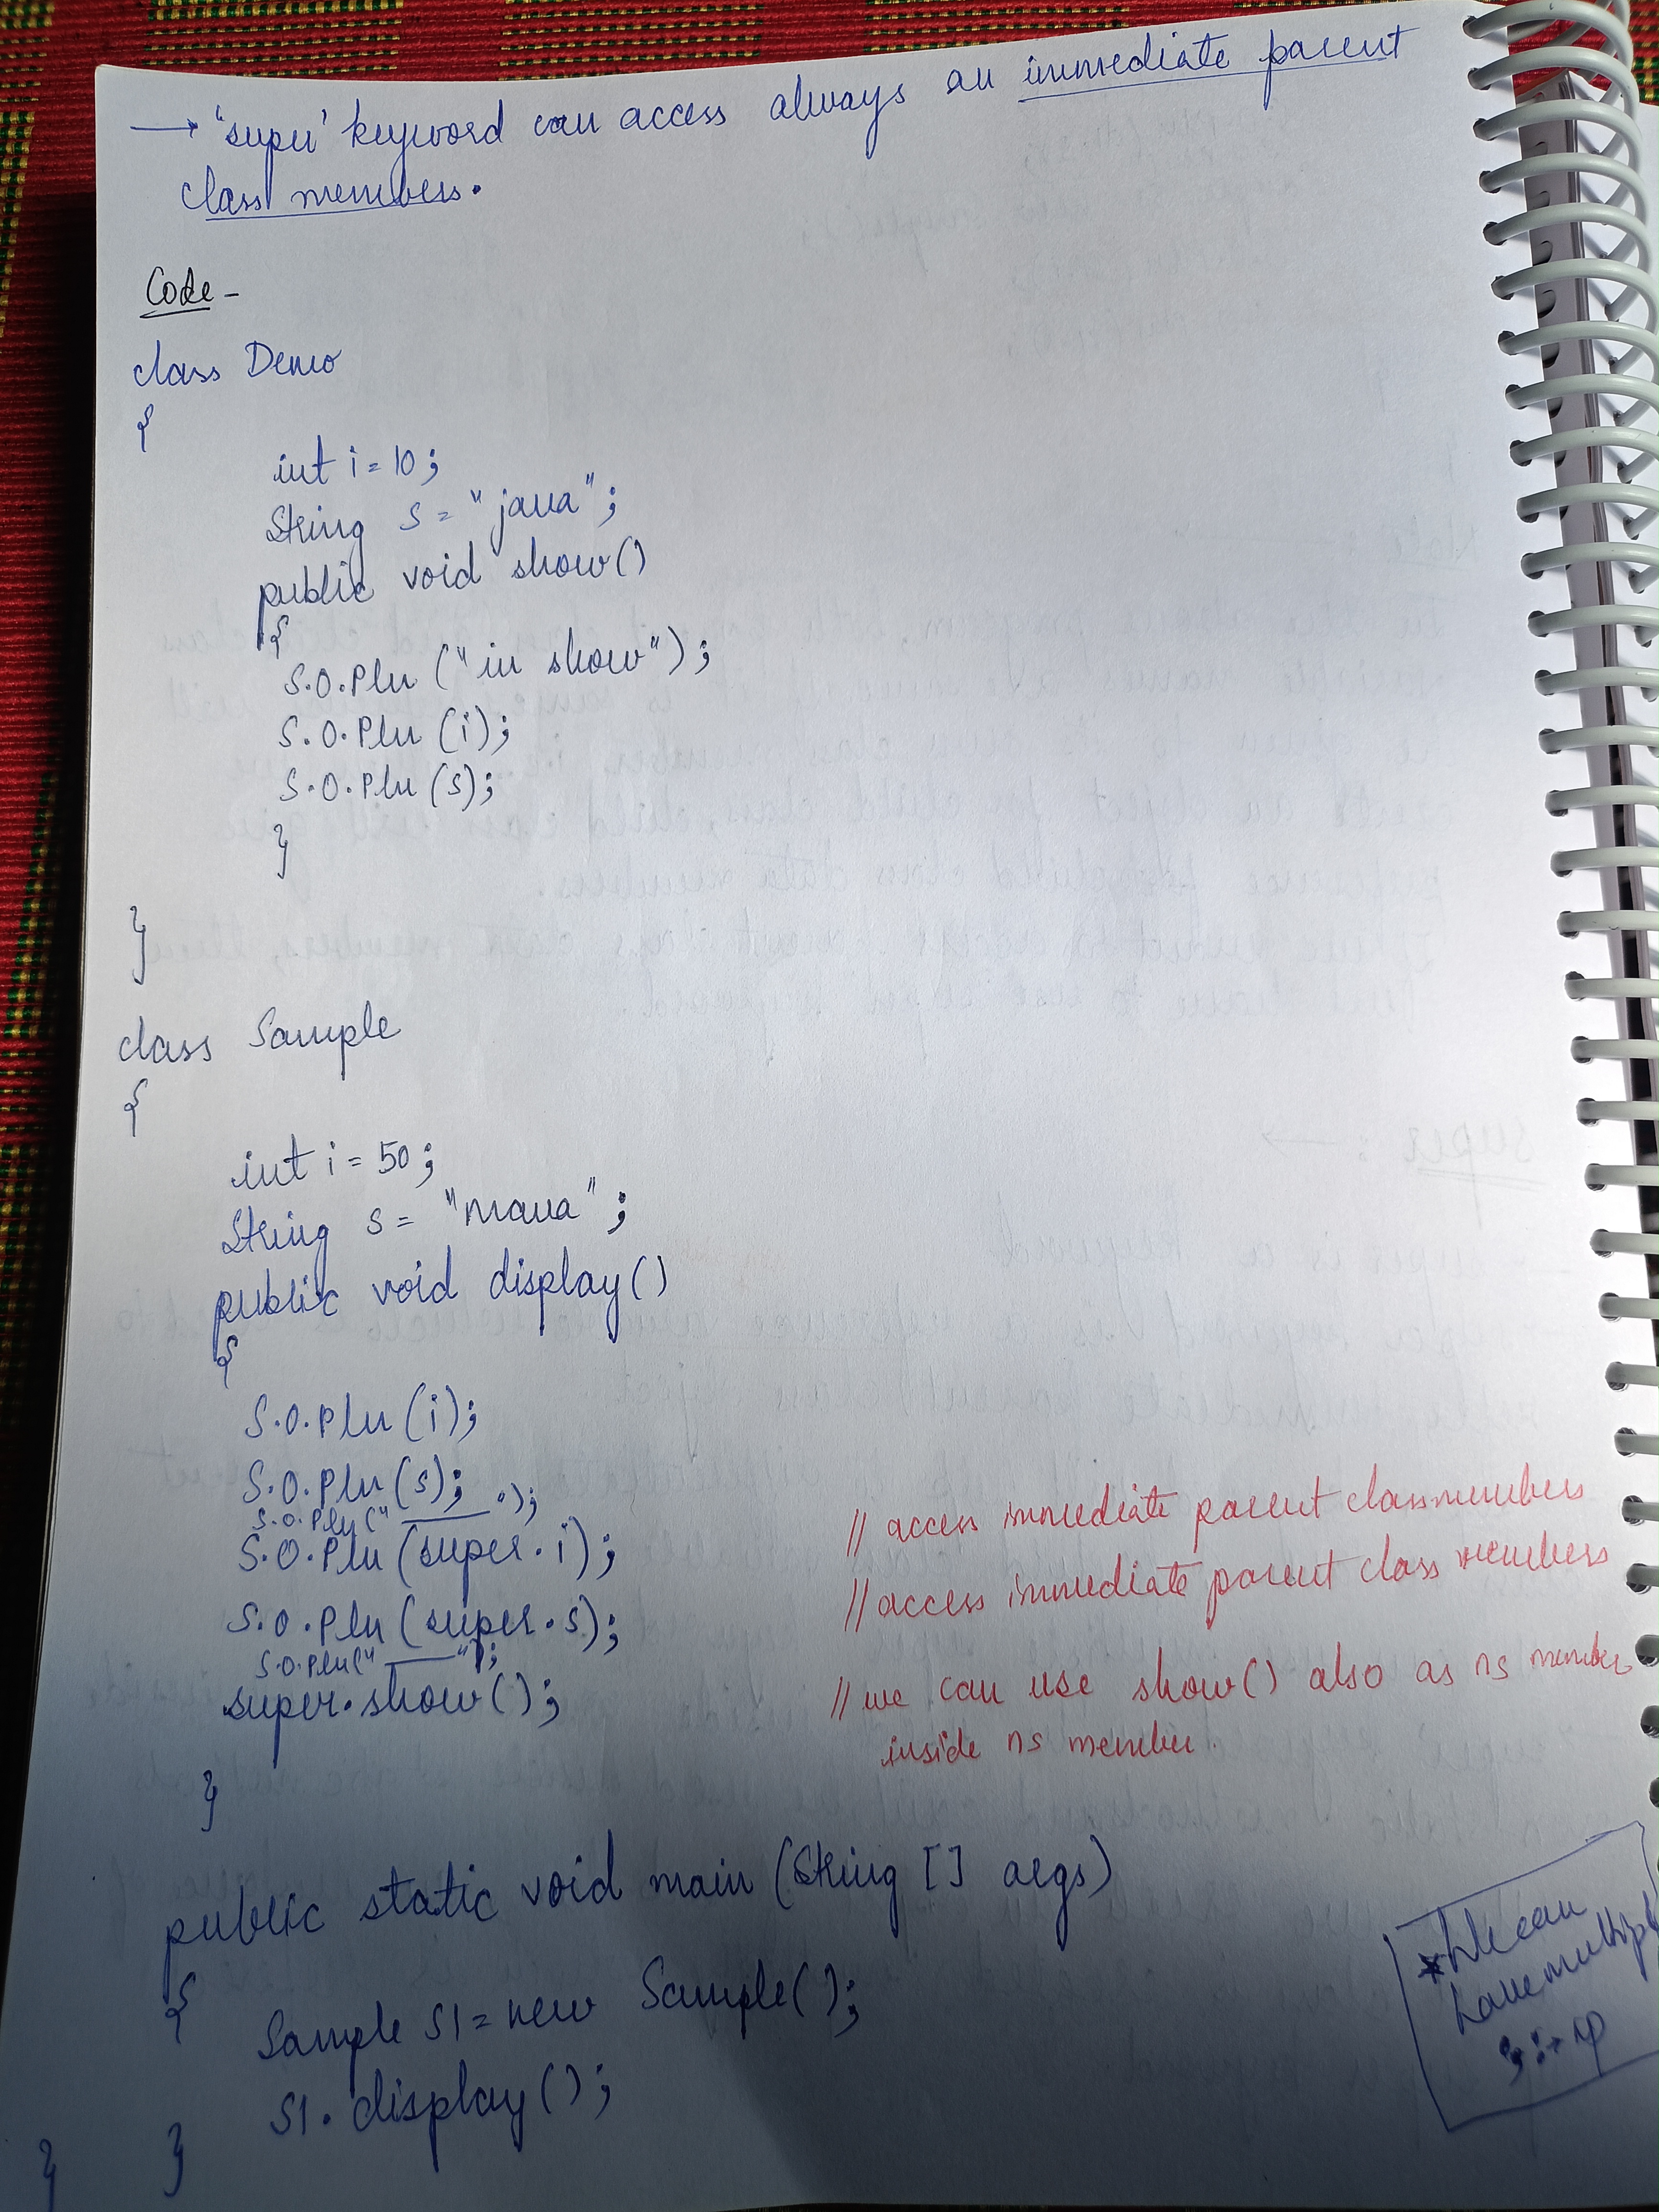 → 'super' keyword can access always an immediate parent
class members.
Code -
class Demo
{
int i = 10;
String s = "java";
public void show()
{
S.O.Pln ("in show");
S.O.Pln (i);
S.O.Pln (s);
}
}
class Sample
{
int i = 50;
String s = "mava";
public void display()
{
S.O.Pln (i);
S.O.Pln (s);
S.O.Pln (" ______ ");
S.O.Pln (super.i); // access immediate parent class members
S.O.Pln (super.s); // access immediate parent class members
S.O.Pln (" ______ ");
super.show(); // we can use show() also as ns member
inside ns member.
}
public static void main (String [] args)
{
Sample S1 = new Sample();
S1.display();
} }
have